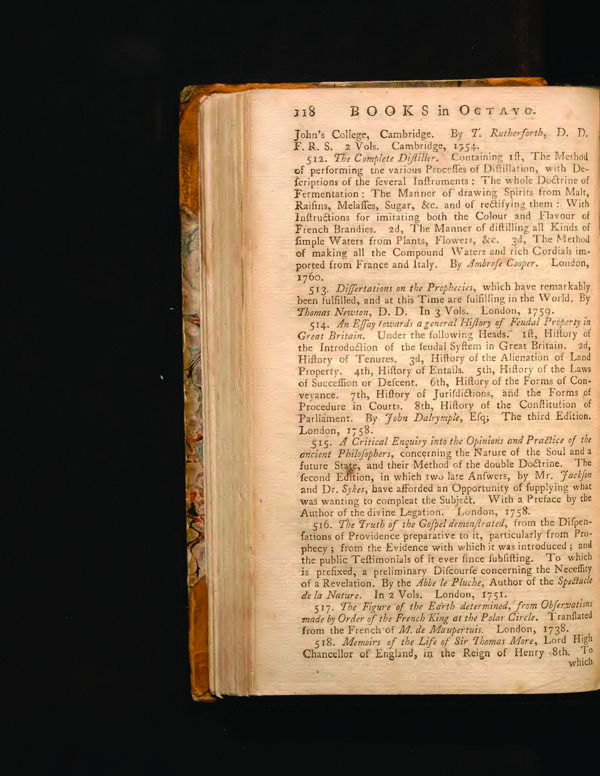 118 BOOKS in OCTAVO.
John's College, Cambridge. By T. Rutherforth, D. D.
F. R. S. 2 Vols. Cambridge, 1754.
512. The Complete Diſtiller. Containing 1ſt, The Method
of performing the various Proceſſes of Diſtillation, with De-
ſcriptions of the ſeveral Inſtruments: The whole Doctrine of
Fermentation: The Manner of drawing Spirits from Malt,
Raiſins, Melaſſes, Sugar, &c. and of rectifying them: With
Inſtructions for imitating both the Colour and Flavour of
French Brandies. 2d, The Manner of diſtilling all Kinds of
ſimple Waters from Plants, Flowers, &c. 3d, The Method
of making all the Compound Waters and rich Cordials im-
ported from France and Italy. By Ambroſe Cooper. London,
1760.
513. Diſſertations on the Prophecies, which have remarkably
been fulfilled, and at this Time are fulfilling in the World. By
Thomas Newton, D. D. In 3 Vols. London, 1759.
514. An Eſſay towards a general Hiſtory of Feudal Property in
Great Britain. Under the following Heads. 1ſt, Hiſtory of
the Introduction of the feudal Syſtem in Great Britain. 2d,
Hiſtory of Tenures. 3d, Hiſtory of the Alienation of Land
Property. 4th, Hiſtory of Entails. 5th, Hiſtory of the Laws
of Succeſſion or Deſcent. 6th, Hiſtory of the Forms of Con-
veyance. 7th, Hiſtory of Juriſdictions, and the Forms of
Procedure in Courts. 8th, Hiſtory of the Conſtitution of
Parliament. By John Dalrymple, Eſq; The third Edition.
London, 1758.
515. A Critical Enquiry into the Opinions and Practice of the
ancient Philoſophers, concerning the Nature of the Soul and a
future State, and their Method of the double Doctrine. The
ſecond Edition, in which two late Anſwers, by Mr. Jackſon
and Dr. Sykes, have afforded an Opportunity of ſupplying what
was wanting to compleat the Subject. With a Preface by the
Author of the divine Legation. London, 1758.
516. The Truth of the Goſpel demonſtrated, from the Diſpen-
ſations of Providence preparative to it, particularly from Pro-
phecy; from the Evidence with which it was introduced; and
the public Teſtimonials of it ever ſince ſubſiſting. To which
is prefixed, a preliminary Diſcourſe concerning the Neceſſity
of a Revelation. By the Abbe le Pluche, Author of the Spectacle
de la Nature. In 2 Vols. London, 1751.
517. The Figure of the Earth determined, from Obſervations
made by Order of the French King at the Polar Circle. Tranſlated
from the French of M. de Maupertuis. London, 1738.
518. Memoirs of the Life of Sir Thomas More, Lord High
Chancellor of England, in the Reign of Henry 8th. To
which